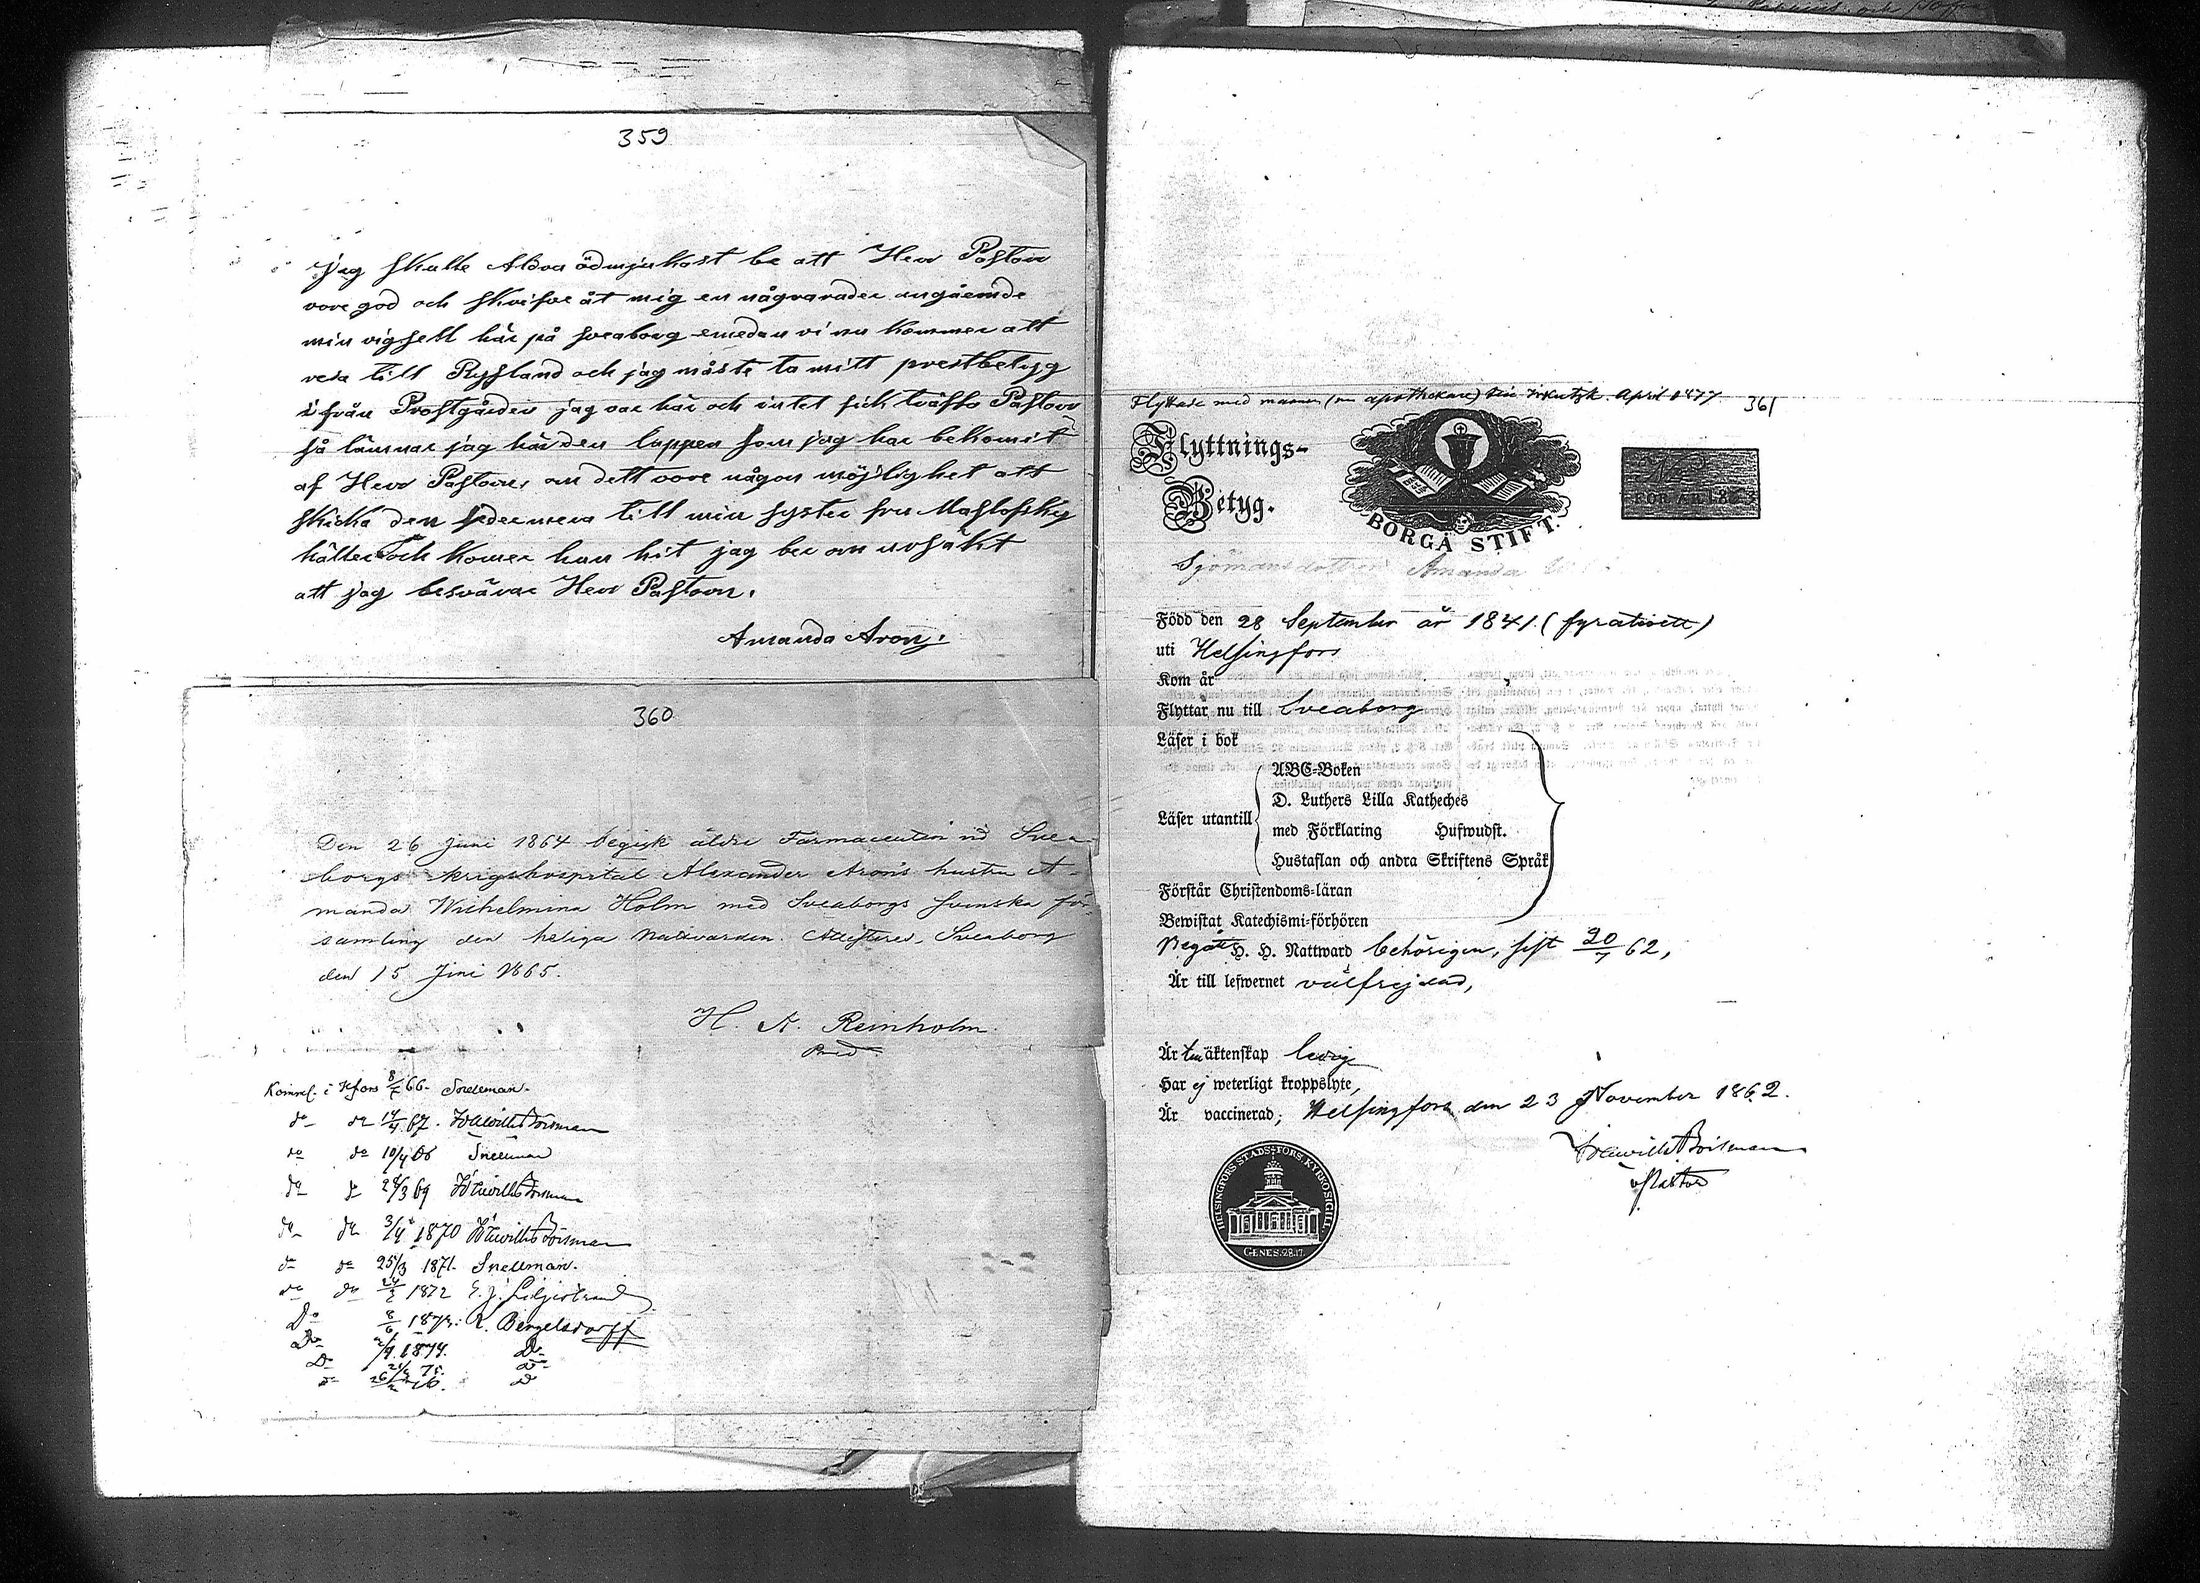 359
jag skulle Aldra ödmjukast be att Herr Pastorn
vore god och skrifva åt mig en några rader angående
min vigsell här på Sveaborg emedan vi nu kommer att
resa till Ryssland och jag måste ta mitt prestbetyg
ifrån Prostgården jag var här och intet fick träffa Pastorn
så lämnar jag här den lappen som jag har bekomit
af Herr Pastorn, om dett vore någon möjlighet att
skicka den sedermera till min syster fru Maslofsky
håller och komer hon hit jag ber om ursäkt
att jag besvärar Herr Pastorn.
Amanda Arons.
360
Den 26 Juni 1864 begick äldre Farmaceuten vid Svea-
borgs krigshospital Alexander Arons hustru A-
manda Wilhelmina Holm med Sveaborgs svenska för-
samling den heliga nattvarden. Attesteras, Sveaborg
den 15 Juni 1865.
H. A. Reinholm
Kommel. i Hfors 8/ 66. Snellman.
do do 14/4 67.
do do 10/4 68 Snellman
do do 28/3 69
do do 3/4 1870
do do 25/3 1871. Snellman.
do do 1872 E. J. Liljestrand
Do 8/6 1873. R. Bengelsdorff
Do 1874. Do
Do 75. Do
361
Flyttade med mannen (en apothekare) till Irkutsk. April 1877
Flyttnings-
Betyg.
BORGÅ STIFT.
No
FÖR ÅR 186
Sjömansdottren Amanda
Född den 28 September år 1841. (fyrationett)
uti Helsingfors
Kom år
Flyttar nu till Sveaborg
Läser i bok
ABC-Boken
D. Luthers Lilla Katheches
Läser utantill
med Förklaring Hufwudst.
Hustaflan och andra Skriftens Språk
Förstår Christendoms-läran
Bewistat Katechismi-förhören
Begått H. H. Nattward behörigen, sist 20/7 62,
Är till lefwernet välfrejdad,
Är till äktenskap ledig
Har ej weterligt kroppslyte,
Är vaccinerad; Helsingfors den 23 November 1862.
v Pastor
HELSINGFORS STADS-FÖRS KYRKOSIGILL.
GENES. 28.17.